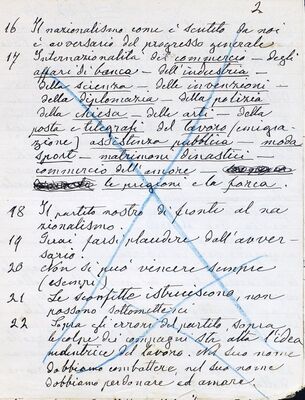 2
16 Il nazionalismo come è sentito da noi
è avversario del progresso generale
17 Internazionalità del commercio – degli
affari di banca – dell'industria –
della scienza – delle invenzioni –
della diplomazia – della polizia
della chiesa – delle arti – della
posta e telegrafi del lavoro (emigra
zione) assistenza pubblica – moda
sport – matrimoni dinastici
commercio dell'amore –
le prigioni e la forca.
18 Il partito nostro di fronti al na
zionalismo.
19 Guai farsi plaudire dall'avver-
sario.
20 Non si può vincere sempre
(esempi)
21 Le sconfitte istruiscono, non
possono sottometterci
22 Sopra gli errori del partito, sopra
le colpe dei compagni sta alta l'idea
redentrice del lavoro. Nel suo nome
dobbiamo combattere, nel suo nome
dobbiamo perdonare ed amare.